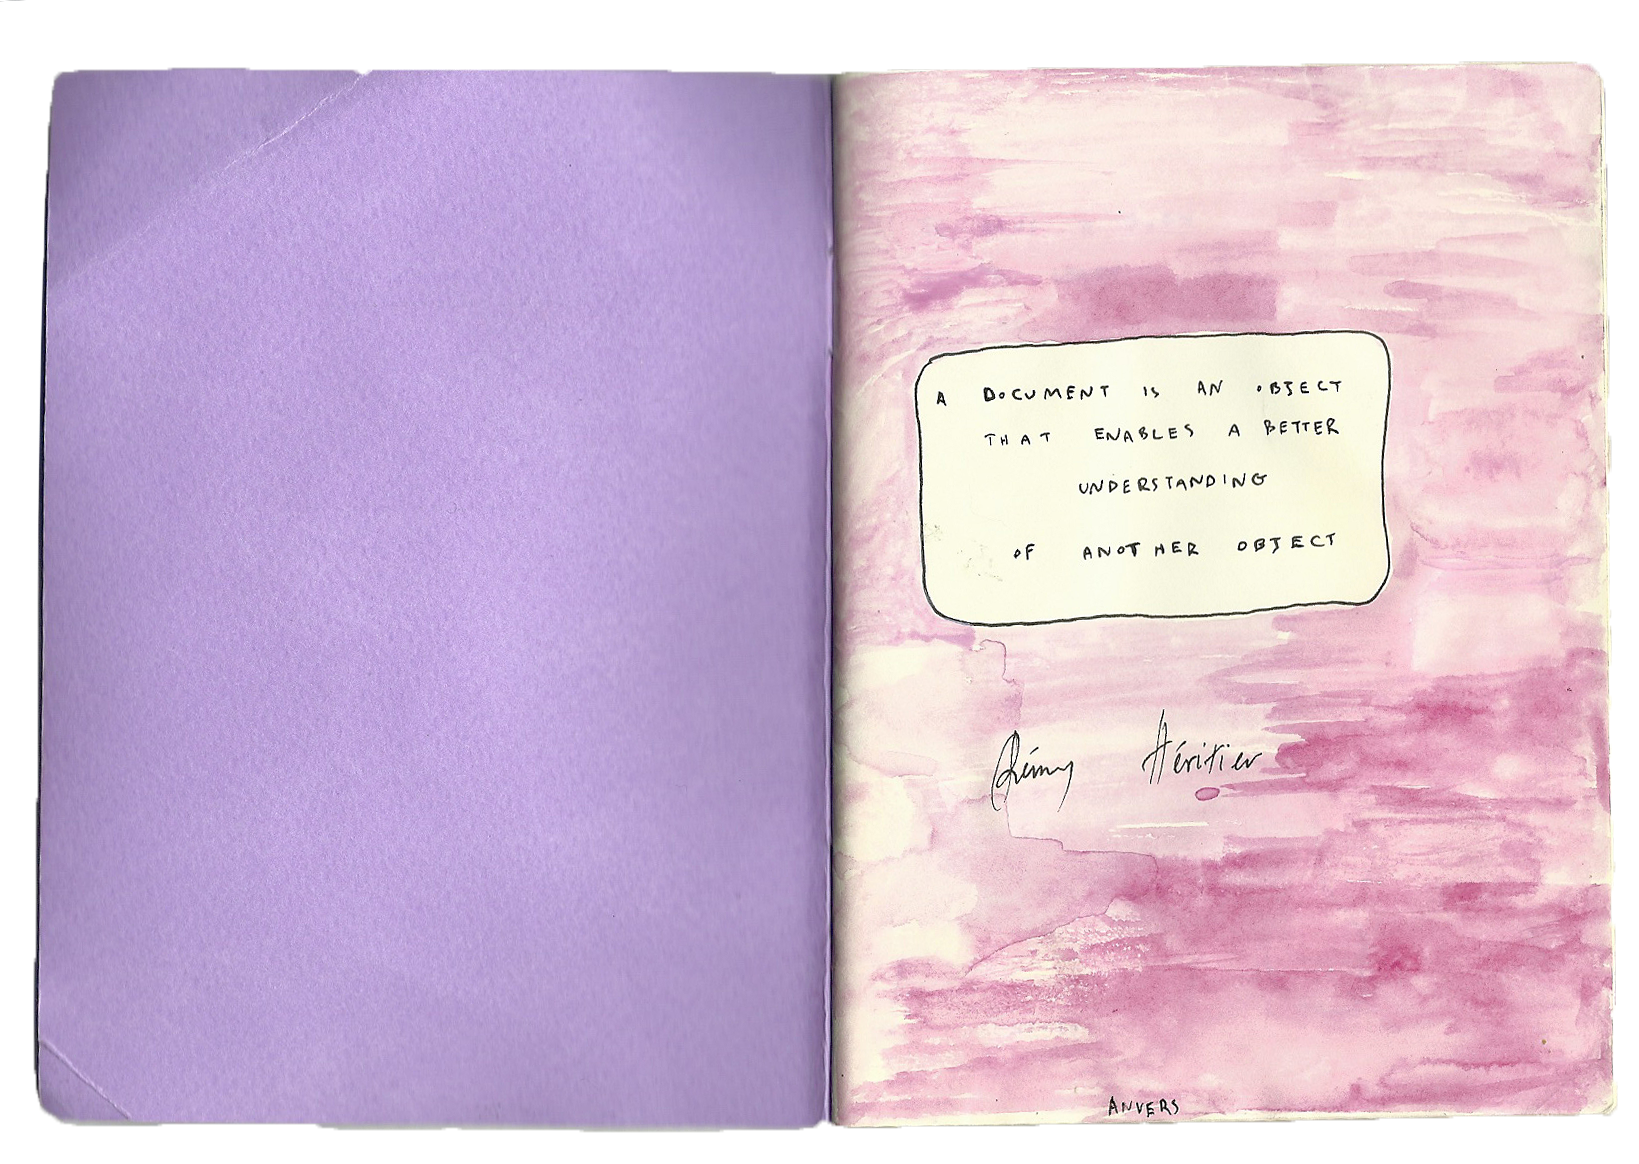 A DOCUMENT IS AN OBJECT
THAT ENABLES A BETTER
UNDERSTANDING
OF ANOTHER OBJECT
Rémy Héritier
ANVERS